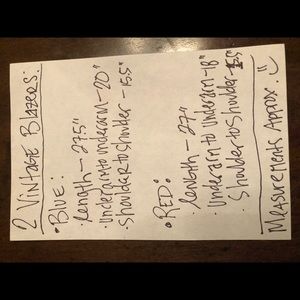 2 Vintage Blazers:
• BLUE:
• length - 27.5"
• underarm to underarm - 20"
• Shoulder to shoulder - 15.5"
• RED:
• length - 27"
• Underarm to Underarm - 18"
• Shoulder to Shoulder - 15.5"
Measurements Approx. :)